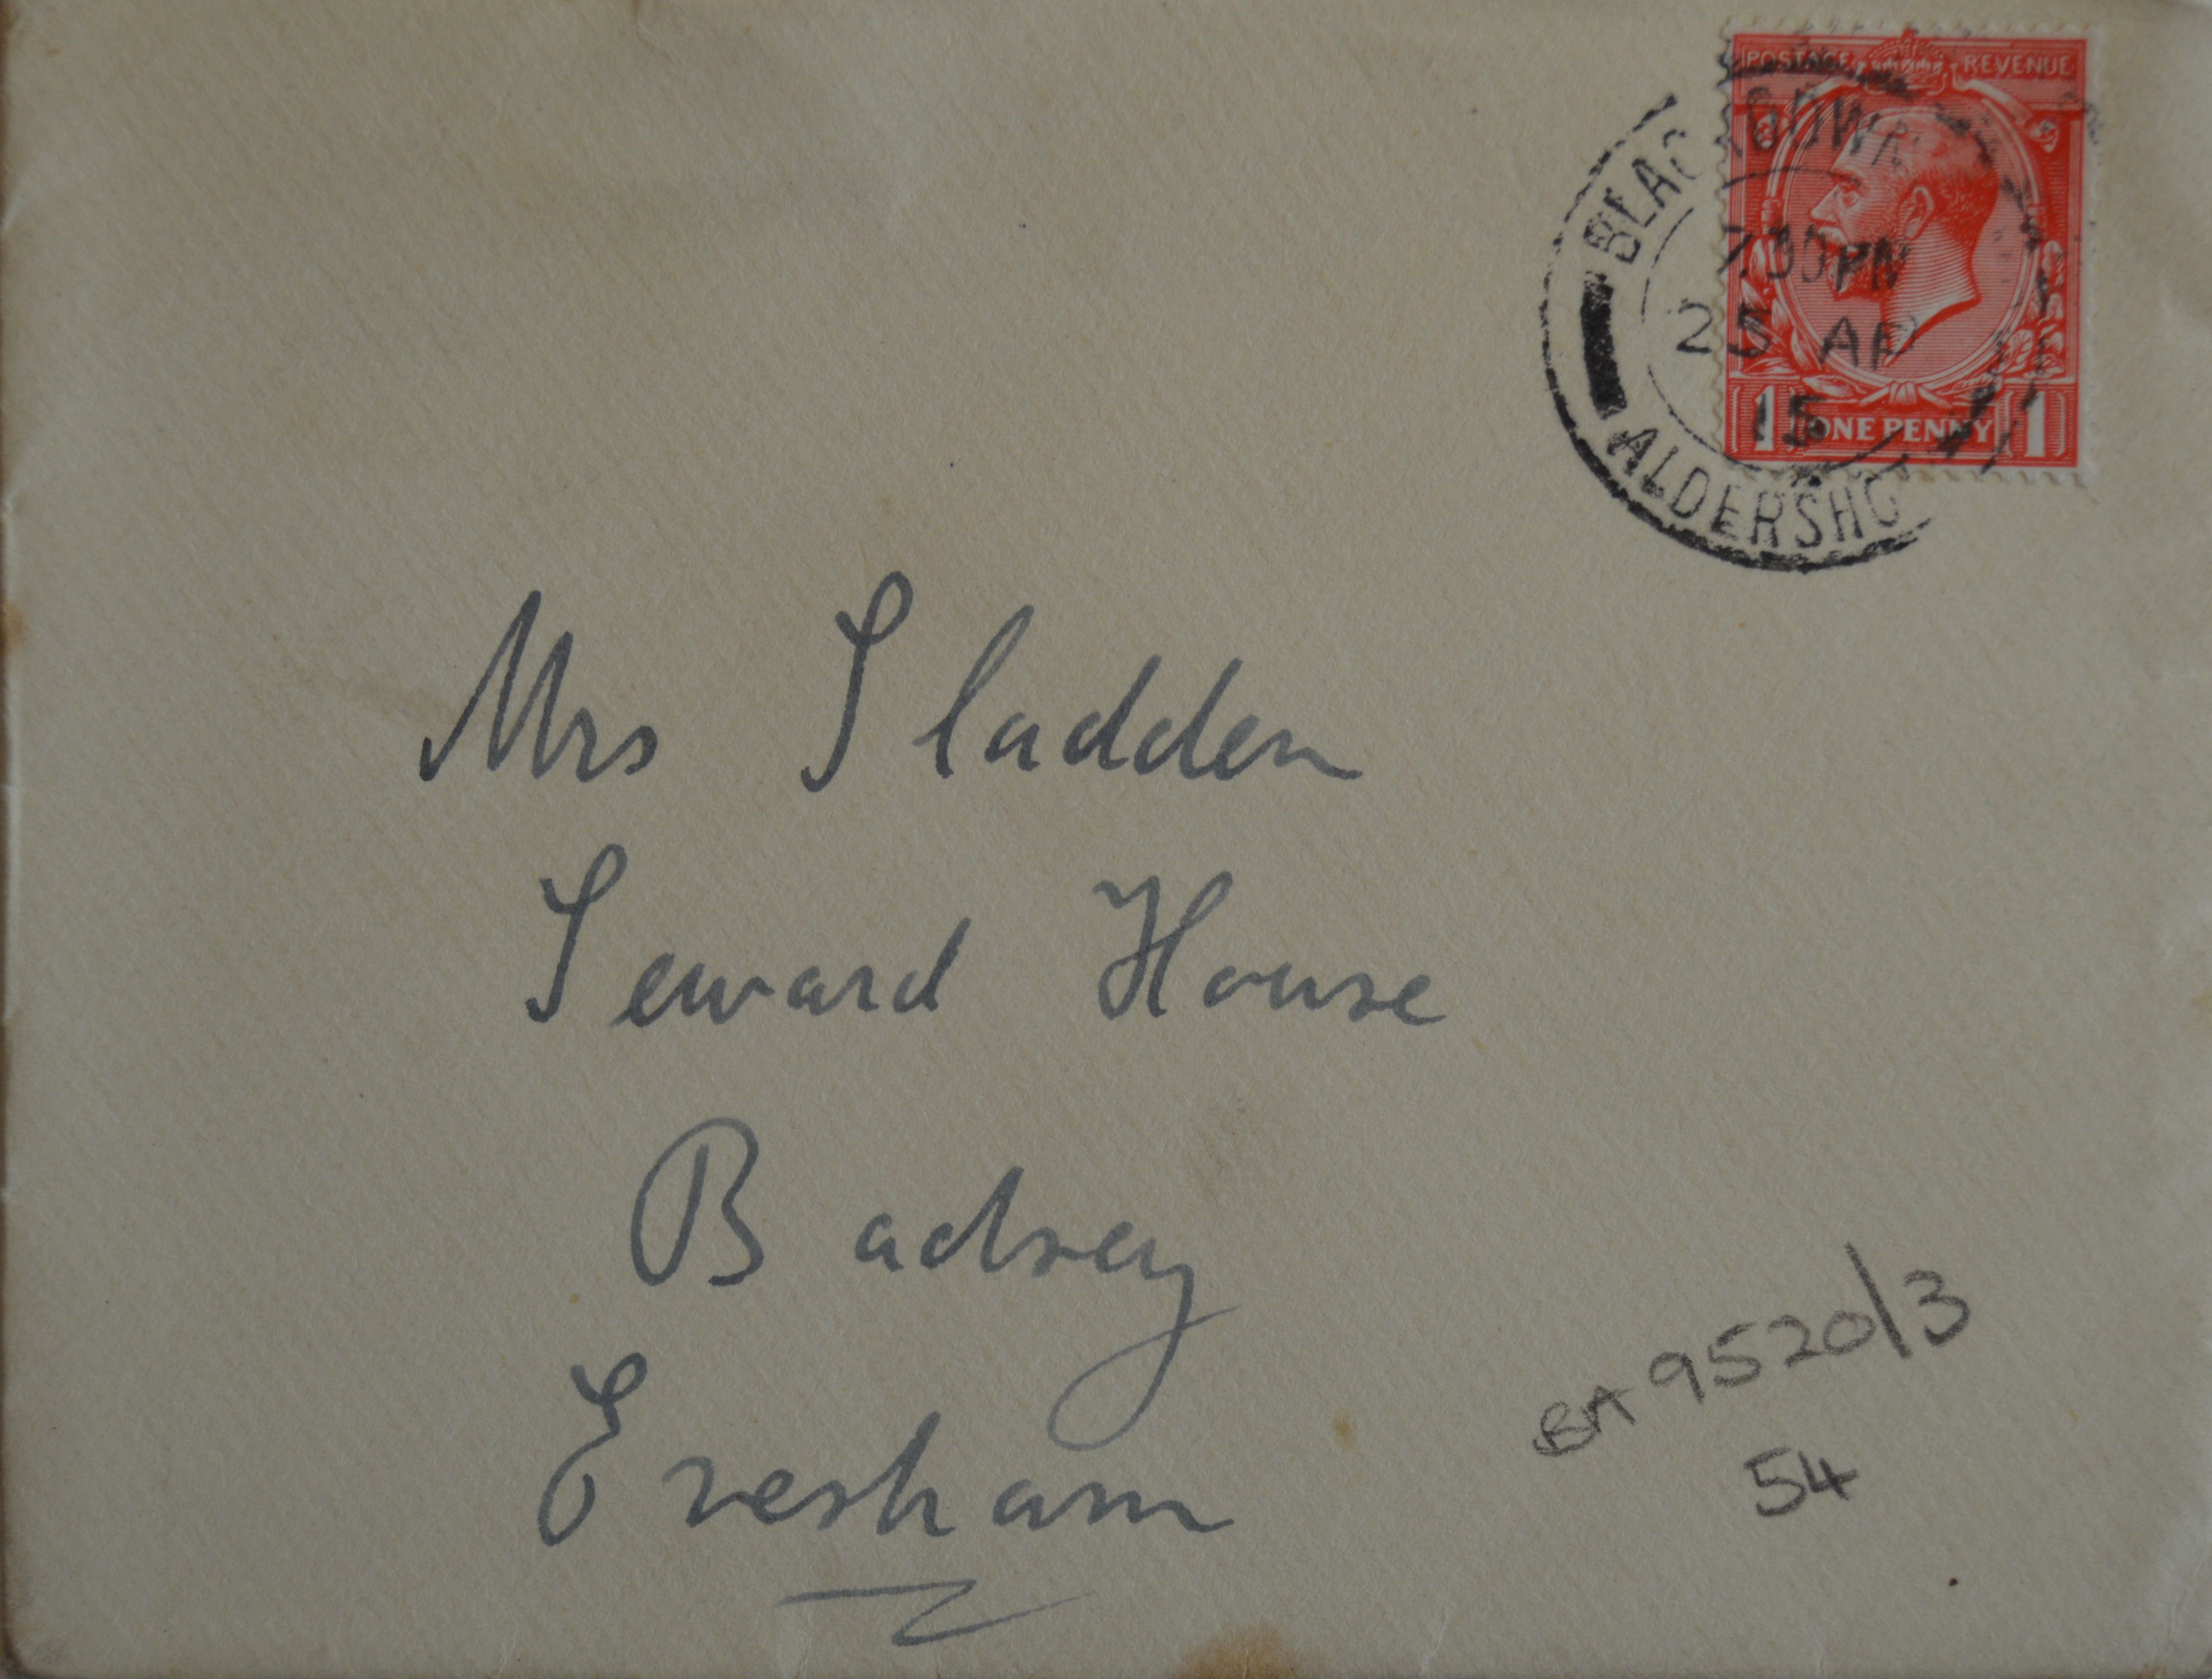 POSTAGE REVENUE
BLACKDOWN
7.30PM
25 AP
15
1 ONE PENNY 1
ALDERSHOT
Mrs Sladden
Seward House
Badsey
Evesham
BA 9520/3
54